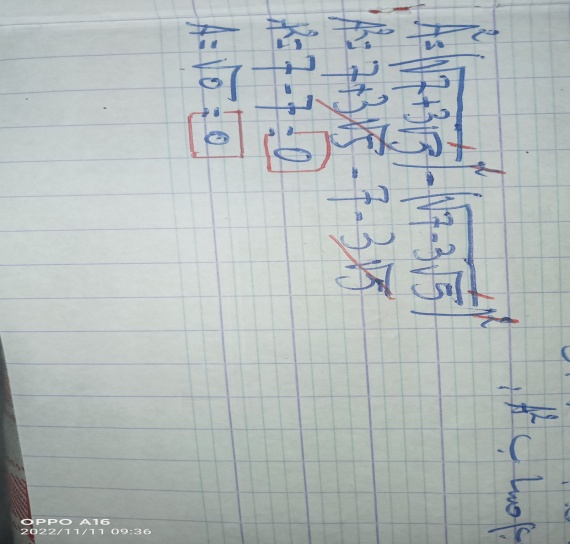 أحسب A²
A² = (√7+3√5)² - (√7-3√5)²
A² = 7+3√5 - 7-3√5
A² = 7 - 7 = 0
A = √0 = 0
OPPO A16
2022/11/11 09:36